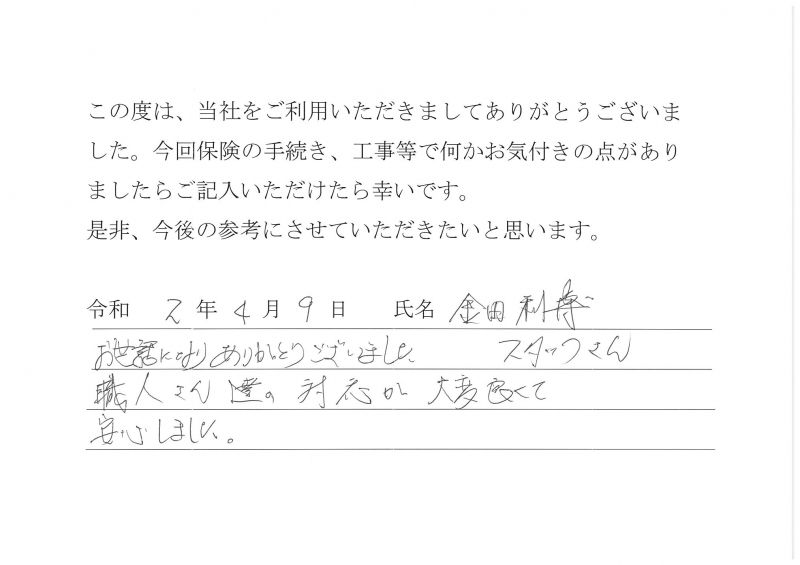 この度は、当社をご利用いただきましてありがとうございま
した。今回保険の手続き、工事等で何かお気付きの点があり
ましたらご記入いただけたら幸いです。
是非、今後の参考にさせていただきたいと思います。
令和 2 年 4 月 9 日 氏名 金田 利博
お世話になりありがとうございました。 スタッフさん
職人さん達の対応が大変良くて
安心しました。